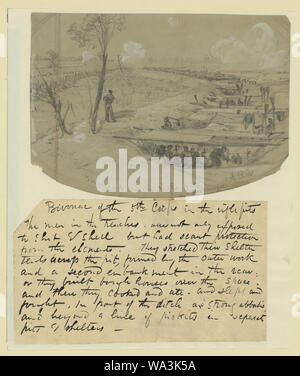 Bivouac of the 5th Corps in the rifle pits
The men in the trenches were not only exposed
to shot & shell but had scant protection
from the elements. They stretched their shelter
tents across the pit, formed by the outer work
and a second embankment in the rear,
or they built bough houses over the space
and there they cooked and ate and slept and
fought. In front of the ditch a strong abbatis
and beyond a line of pickets in separate
pits & shelters —
alamy
WA3K5A